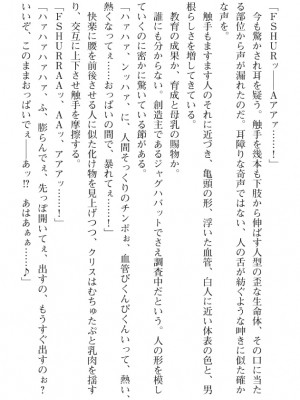 「FSHURッ……Aアアッ……！」
　今も驚かされ耳を疑う。触手を幾本も下肢から伸ばす人型の歪な生命体、その口に当た
る部位から声が漏れたのだ。耳障りな奇声ではない、人の舌が紡ぐような呻きに似た確か
な声を。
　触手もますます人のそれに近づき、亀頭の形、浮いた血管、白人に近い体表の色と、男
根らしさを増してきている。
　教育の成果か、育成と母乳の賜物か。
　誰にも分からない。創造主であるジャグハバットでさえ調査中だという。人の形を模し
ていくのに密かに驚いている節がある。
「ハァハァ、ンッハァ、に、人間そっくりのチンポぉ、血管びくんびくんいって、熱い、
熱くなってぇ……おっぱいの間で、暴れてぇ……！」
　快楽に腰を前後させる人に似た化け物を見上げつつ、クリスはむちゅたぷと乳肉を揺す
り、交互に上下させ触手を摩擦する。
「FSHURRAAッ、AAッ、アアアッ……！」
「ハァハァハァハァ、ふ、膨らんでぇ、先っぽ開いてぇ、出すの、もうすぐ出すのぉ？
いいぞ、このままおっぱいでぇ――あッ!?　あはあぁぁ……♪」